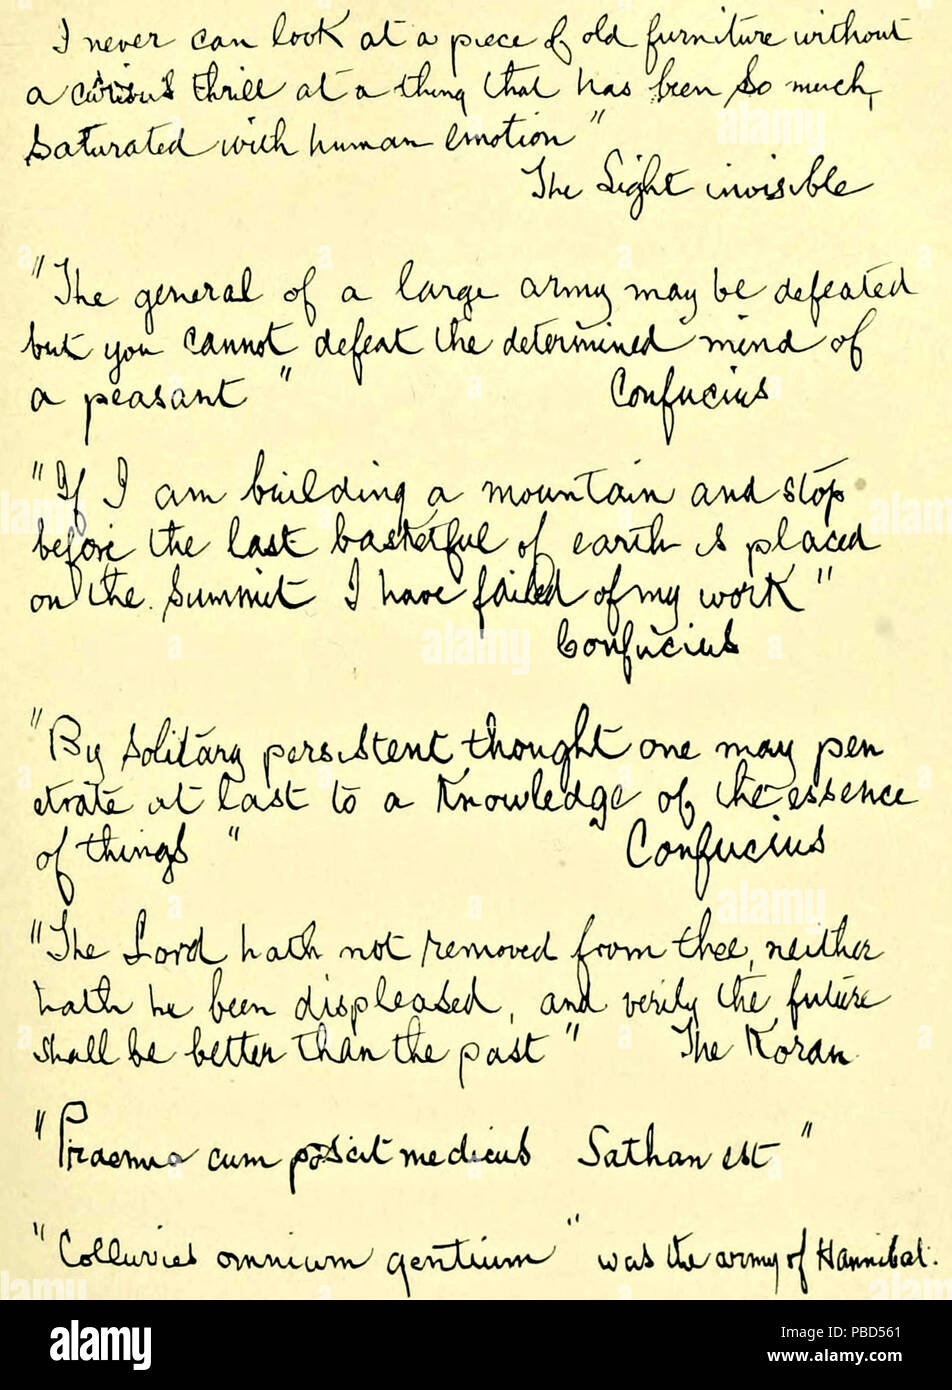 I never can look at a piece of old furniture without
a curious thrill at a thing that has been so much,
saturated with human emotion"
The Light invisible
"The general of a large army may be defeated
but you cannot defeat the determined mind of
a peasant"
Confucius
"If I am building a mountain and stop
before the last basketful of earth is placed
on the summit I have failed of my work"
Confucius
"By solitary persistent thought one may pen
etrate at last to a knowledge of the essence
of things"
Confucius
"The Lord hath not removed from thee, neither
hath he been displeased, and verily the future
shall be better than the past" The Koran.
"Praemia cum poscit medicus Sathan est"
"Colluvies omnium gentium" was the army of Hannibal.
alamy
Image ID: PBD561
www.alamy.com